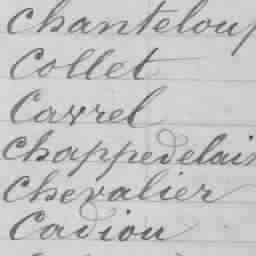 Chanteloup
Collet
Carrel
Chappedelain
Chevalier
Cadiou